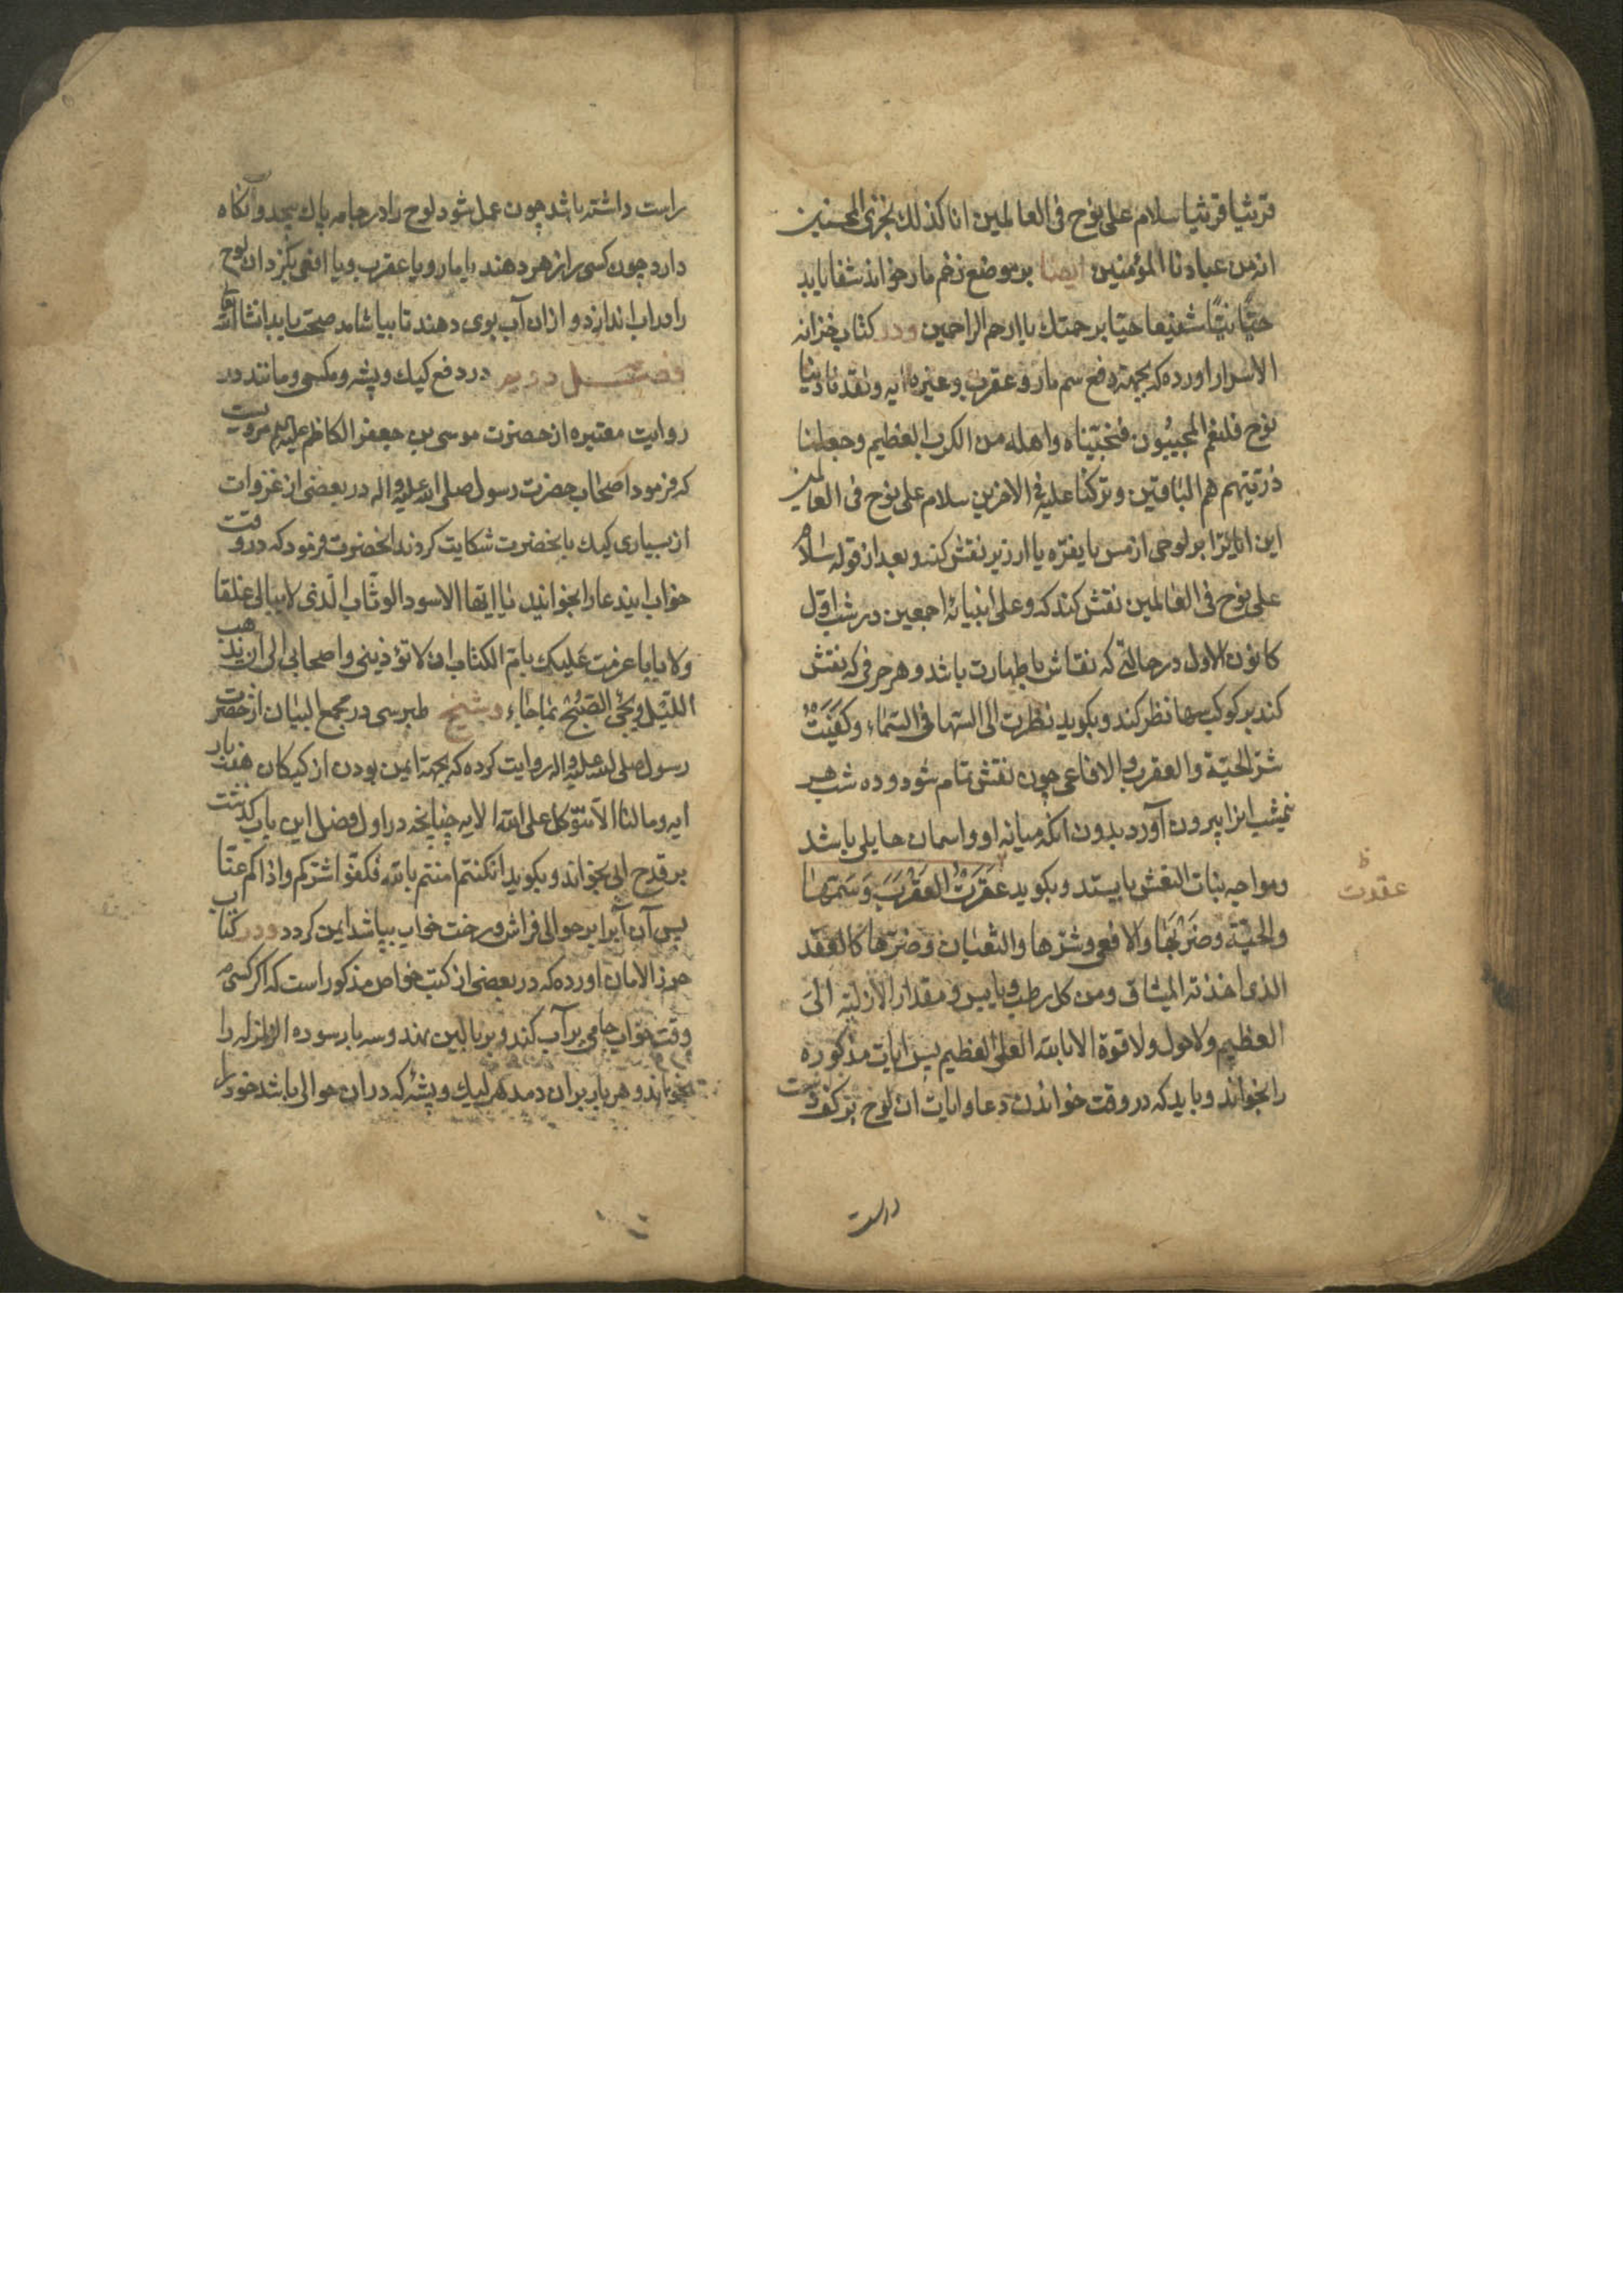 قرنثیا قرنثیا سلام علی نوح فی العالمین انا کذلک نجزی المحسنین
انه من عبادنا المؤمنین ایضا بر موضع زخم مار خواند شفا یابد
شفیعا برحمتک یا ارحم الراحمین و در کتاب خزانه
الاسرار اورده که بجهة دفع سم مار و عقرب و غیره ایه ولقد نادینا
نوح فلنعم المجیبون فنجیناه واهله من الکرب العظیم وجعلنا
ذریتهم هم الباقین وترکنا علیه فی الاخرین سلام علی نوح فی العالمین
این ایاترا بر لوحی از مس یا نقره یا ارزیز نقش کند و بعد از قوله سلام
علی نوح فی العالمین نقش کند که وعلی انبیائه اجمعین در شب اول
کانون الاول در حالتی که نقاش با طهارت باشد و هر حرفی که نقش
کند بر کوکب سها نظر کند و بکوید نظرت الی السها فی السماء وکفیت
شر الحیة والعقرب والافاعی چون نقش تمام شود و ده شب هر
نیمشب انرا بیرون آورد بدون انکه میانه او و اسمان حایلی باشد
و مواجه بنات النعش بایستد و بکوید عقرت العقرب وسمتها
والحیة وضربها والافعی وشرها والثعبان وضرها کالعقد
الذی اخذته المیثاق ومن کل رطب ویابس ومقدار الازلیة الی
العظیم ولا حول ولا قوة الا بالله العلی العظیم پس ایات مذکوره
را بخواند و باید که در وقت خواندن دعا و ایات ان لوح بر کف دست
عقدت
ظ
راست
راست داشته باشد چون عمل شود لوح را در جامه پاک پیچد و آنکاه
دارد چون کسی را زهر دهند یا مار و یا عقرب و یا افعی بکزد ان لوح
را در اب اندازد و از ان آب بوی دهند تا بیاشامد صحت یابد انشا الله تعالی
فصل دویم در دفع کیک و پشه و مکس و مانند در
روایت معتبره از حضرت موسی بن جعفر الکاظم علیه السلم مرویست
که فرمود اصحاب حضرت رسول صلی الله علیه واله در بعضی از غزوات
از بسیاری کیک بانحضرت شکایت کردند انحضرت فرمود که در وقت
خواب ایندعا را بخوانید یا ایها الاسود الوثاب الذی لا یبالی غلقا
ولا بابا عزمت علیک بام الکتاب ان لا تؤذینی واصحابی الی ان یذهب
اللیل ویجئ الصبح بما جاء و شیخ طبرسی در مجمع البیان از حضرت
رسول صلی الله علیه واله روایت کرده که بجهة ایمن بودن از کیکان هفت بار
ایه وما لنا الا نتوکل علی الله الایه چنانچه در اول فصل این باب کذشت
بر قدح ابی بخواند و بکوید ان کنتم امنتم بالله فکفوا شرکم واذاکم عنا
پس آن آبرا بر حوالی فراش و رخت خواب بپاشد ایمن کردد و در کتاب
حرز الامان اورده که در بعضی از کتب خواص مذکور است که اکر کسی
وقت خواب جامی پر آب کند و بر بالین نهد و سه بار سوره الزلزله را
بخواند و هر بار بر ان دمد هر کیک و پشه که در ان حوالی باشد خود را